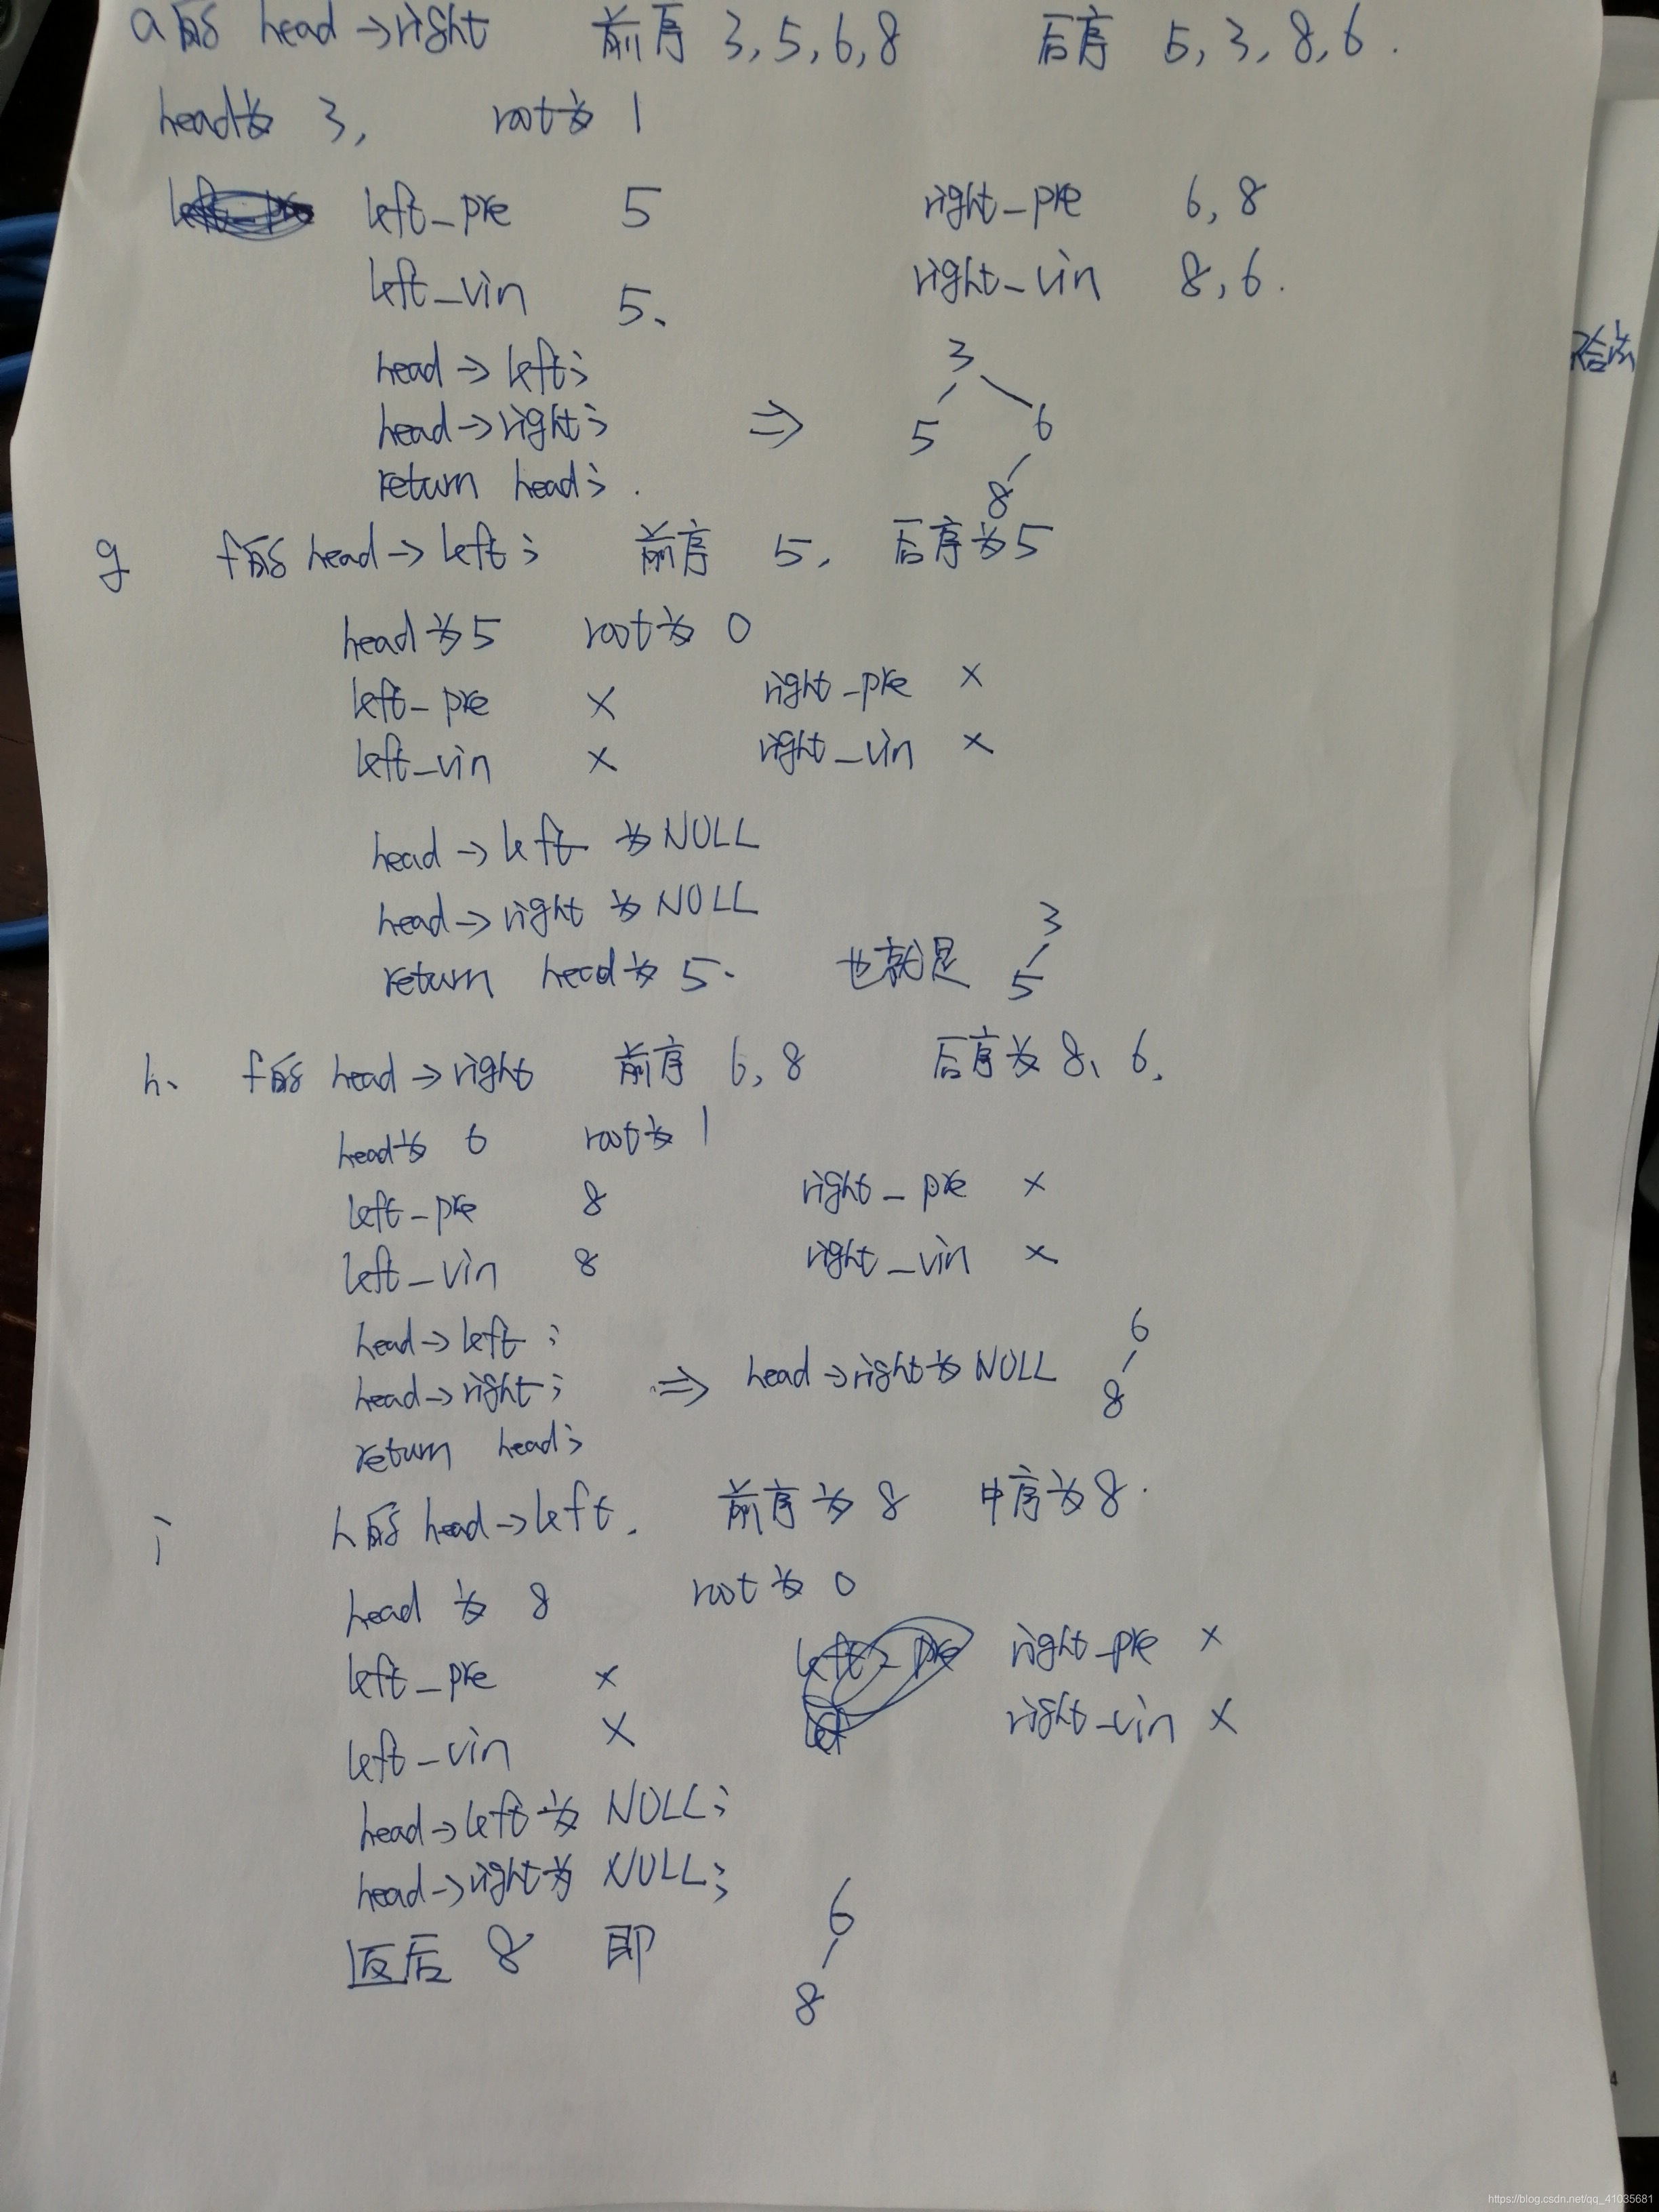 a的 head→right 前序 3,5,6,8 后序 5,3,8,6.
head为 3, root为 1
left_pre 5 right_pre 6,8
left_vin 5、 right_vin 8,6.
head→left;
head→right; ⇒
return head;.
3
5 6
8
g f的 head→left; 前序 5, 后序为5
head为5 root为 0
left-pre × right-pre ×
left_vin × right_vin ×
head→left 为NULL
head→right 为NULL
return head为 5. 也就是
3
5
h、 f的 head→right 前序 6,8 后序为 8、6,
head为 6 root为 1
left_pre 8 right_pre ×
left_vin 8 right_vin ×
head→left;
head→right; ⇒ head→right为 NULL
return head;
6
8
i h的 head→left. 前序为 8 中序为8.
head 为 8 root为 0
left_pre × right_pre ×
left_vin × right_vin ×
head→left为 NULL;
head→right为 NULL;
返后 8 即
6
8
4
https://blog.csdn.net/qq_41035681